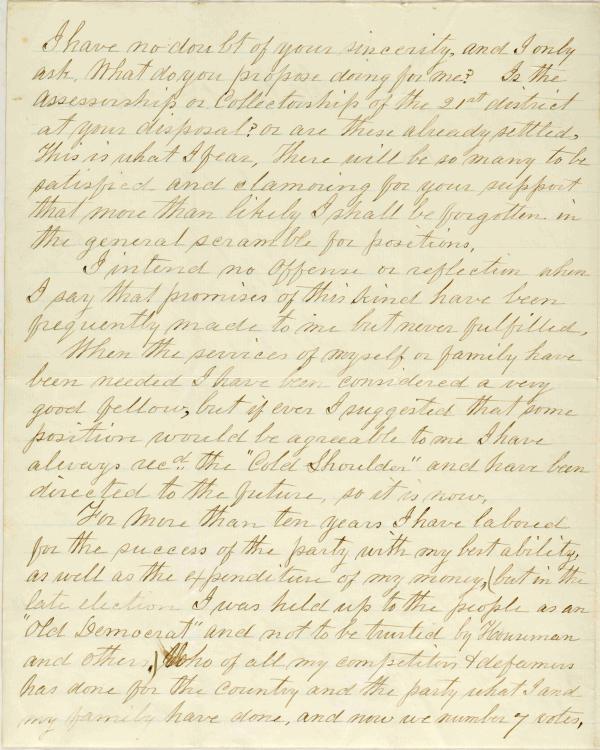 I have no doubt of your sincerity, and I only
ask, What do you propose doing for me? Is the
Assessorship or Collectorship of the 21st district
at your disposal? or are these already settled,
This is what I fear, There will be so many to be
satisfied and clamoring for your support
that more than likely I shall be forgotten in
the general scramble for positions.
I intend no offense or reflection when
I say that promises of this kind have been
frequently made to me but never fulfilled.
When the services of myself or family have
been needed I have been considered a very
good fellow, but if ever I suggested that some
position would be agreeable to me I have
always recd. the "Cold Shoulder" and have been
directed to the future, so it is now.
For more than ten years I have labored
for the success of the party with my best ability,
as well as the expenditure of my money, (but in the
late election I was held up to the people as an
"Old Democrat" and not to be trusted by Houseman
and others.) Who of all my competitors & defamers
has done for the country and the party what I and
my family have done, and now we number 7 votes,